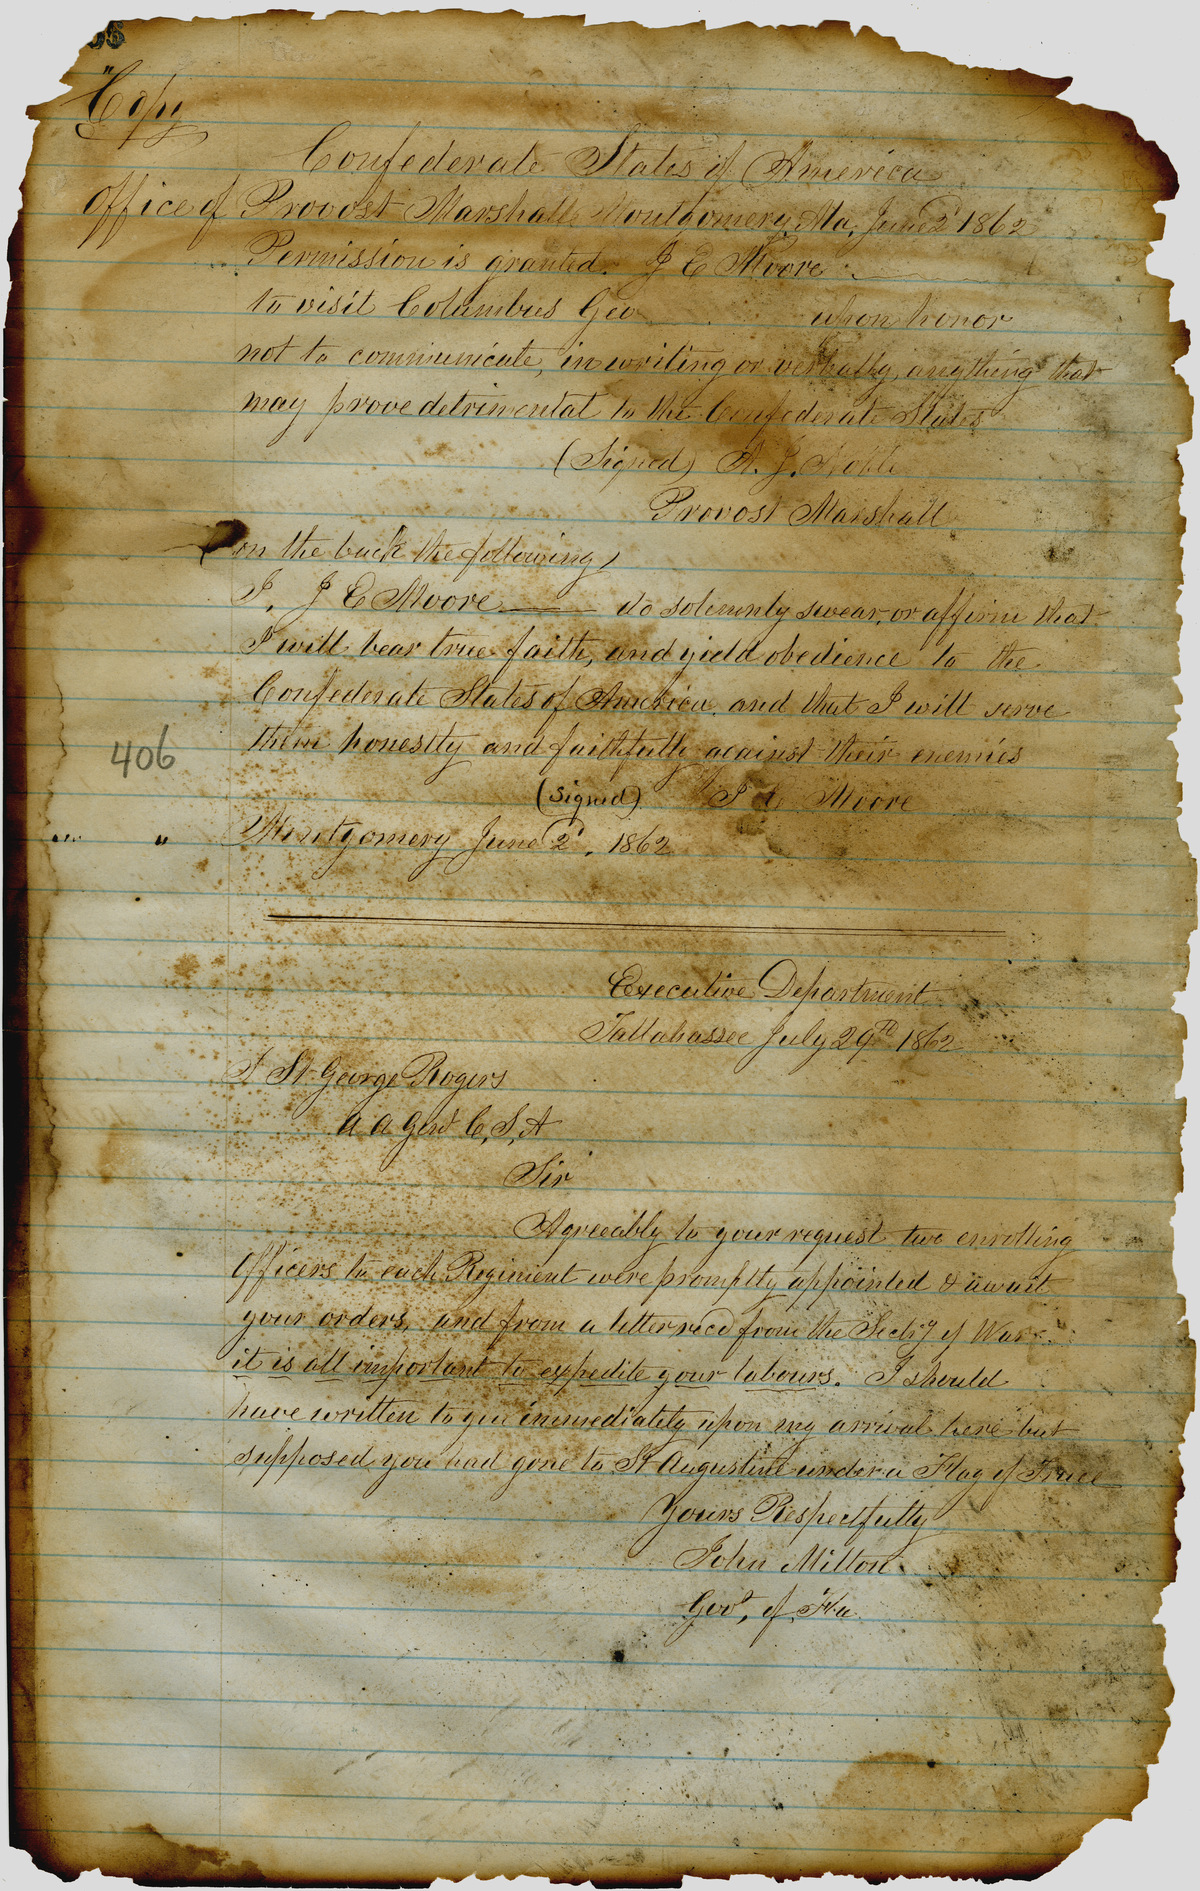 "Copy
Confederate States of America
Office of Provost Marshall Montgomery Ala, June 2d 1862
Permission is granted. J E Moore
to visit Columbus Geo upon honor
not to communicate, in writing or verbally, anything that
may prove detrimental to the Confederate States
(Signed) A. J. Noble
Provost Marshall
(on the back the following)
I, J E Moore do solemnly swear, or affirm that
I will bear true faith, and yield obedience to the
Confederate States of America, and that I will serve
them honestly and faithfully against their enemies
406
(Signed) J E Moore
" " Montgomery June 2d, 1862
Executive Department
Tallahassee July 29th 1862
St George Rogers
A A Genl C, S, A
Sir
Agreeably to your request two enrolling
Officers to each Regiment were promptly appointed & await
your orders, and from a letter recd from the Secty of War
it is all important to expedite your labours. I should
have written to you immediately upon my arrival here but
supposed you had gone to St Augustine under a Flag of Truce
Yours Respectfully
John Milton
Govr, of Fla